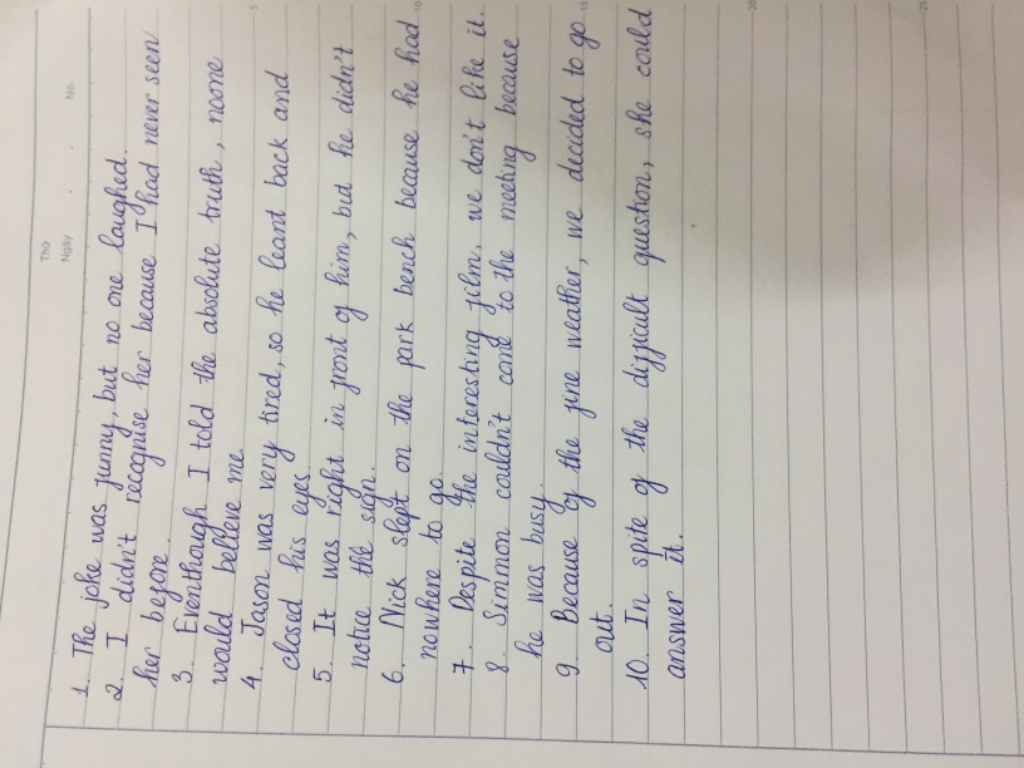 Thứ
Ngày
No.
1. The joke was funny, but no one laughed.
2. I didn't recognise her because I had never seen
her before.
3. Eventhough I told the absolute truth, noone
would believe me.
4. Jason was very tired, so he leant back and
closed his eyes.
5. It was right in front of him, but he didn't
notice the sign.
6. Nick slept on the park bench because he had
nowhere to go.
7. Despite the interesting film, we don't like it.
8. Simmon couldn't come to the meeting because
he was busy.
9. Because of the fine weather, we decided to go
out.
10. In spite of the difficult question, she could
answer it.
5
10
15
20
25